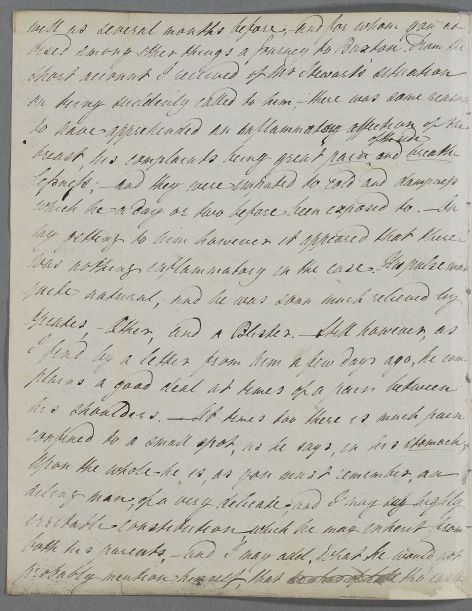 well as several months before, and for whom you ad
vised among other things a Journey to Buxton. From the
short account I received of Mr Steward's situation
on being suddenly called to him, – there was some reason
to have apprehended an inflammatory affection of the
of the side
breast, his complaints being great pain and breath
lessness; – and they were imputed to cold and dampness
which he a day or two before been exposed to. – On
my getting to him however it appeared that there
was nothing inflammatory in the case. His pulse was
quite natural, and he was soon much relieved by
Opiates, – Ether, and a Blister. – Still however, as
I find by a letter from him a few days ago, he com
plains a good deal at times of a pain between
his shoulders. – At times too there is much pain
confined to a small spot, as he says, in his stomach,
Upon the whole he is, as you must remember, an
ailing man, of a very delicate and I may say highly
irritable constitution which he may inherit from
both his parents, – and I may add, what he would not
probably mention himself, that